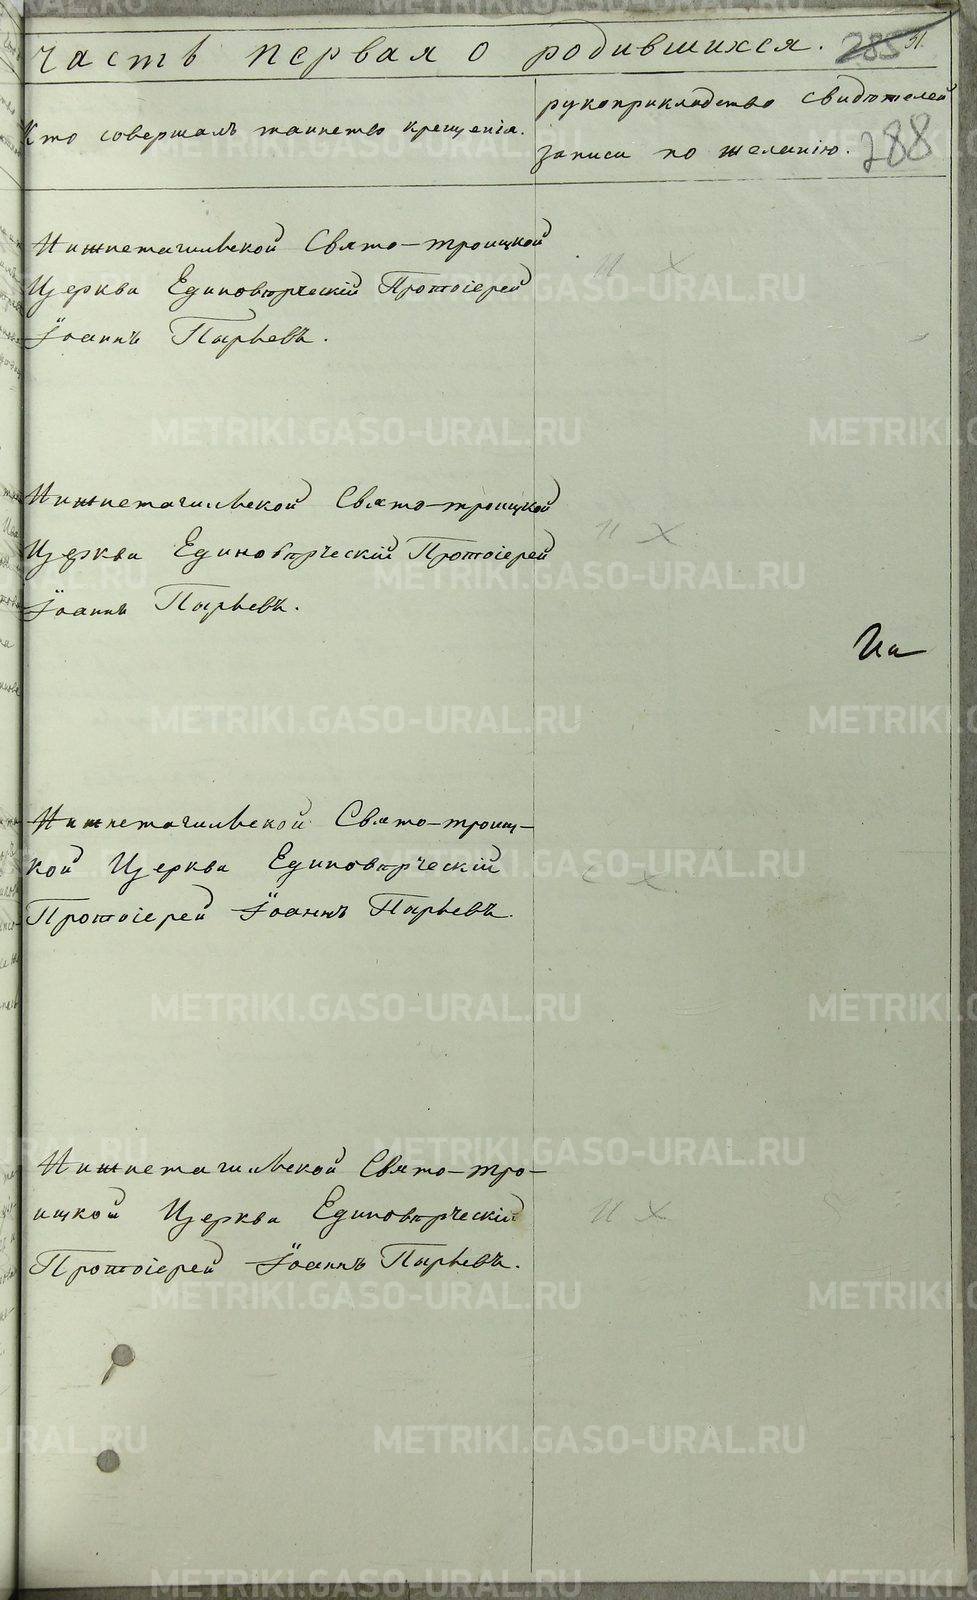 часть первая о родившихся. 285 51.
Кто совершалъ таинство крещенія.
рукоприкладство свидѣтелей
записи по желанію. 288
Нижнетагильской Свято-троицкой
Церкви Единовѣрческій Протоіерей
Іоаннъ Пырьевъ.
И Х
Нижнетагильской Свято-троицкой
Церкви Единовѣрческій Протоіерей
Іоаннъ Пырьевъ.
И Х
На
Нижнетагильской Свято-троиц-
кой Церкви Единовѣрческій
Протоіерей Іоаннъ Пырьевъ.
Х
Нижнетагильской Свято-тро-
ицкой Церкви Единовѣрческій
Протоіерей Іоаннъ Пырьевъ.
И Х
METRIKI.GASO-URAL.RU